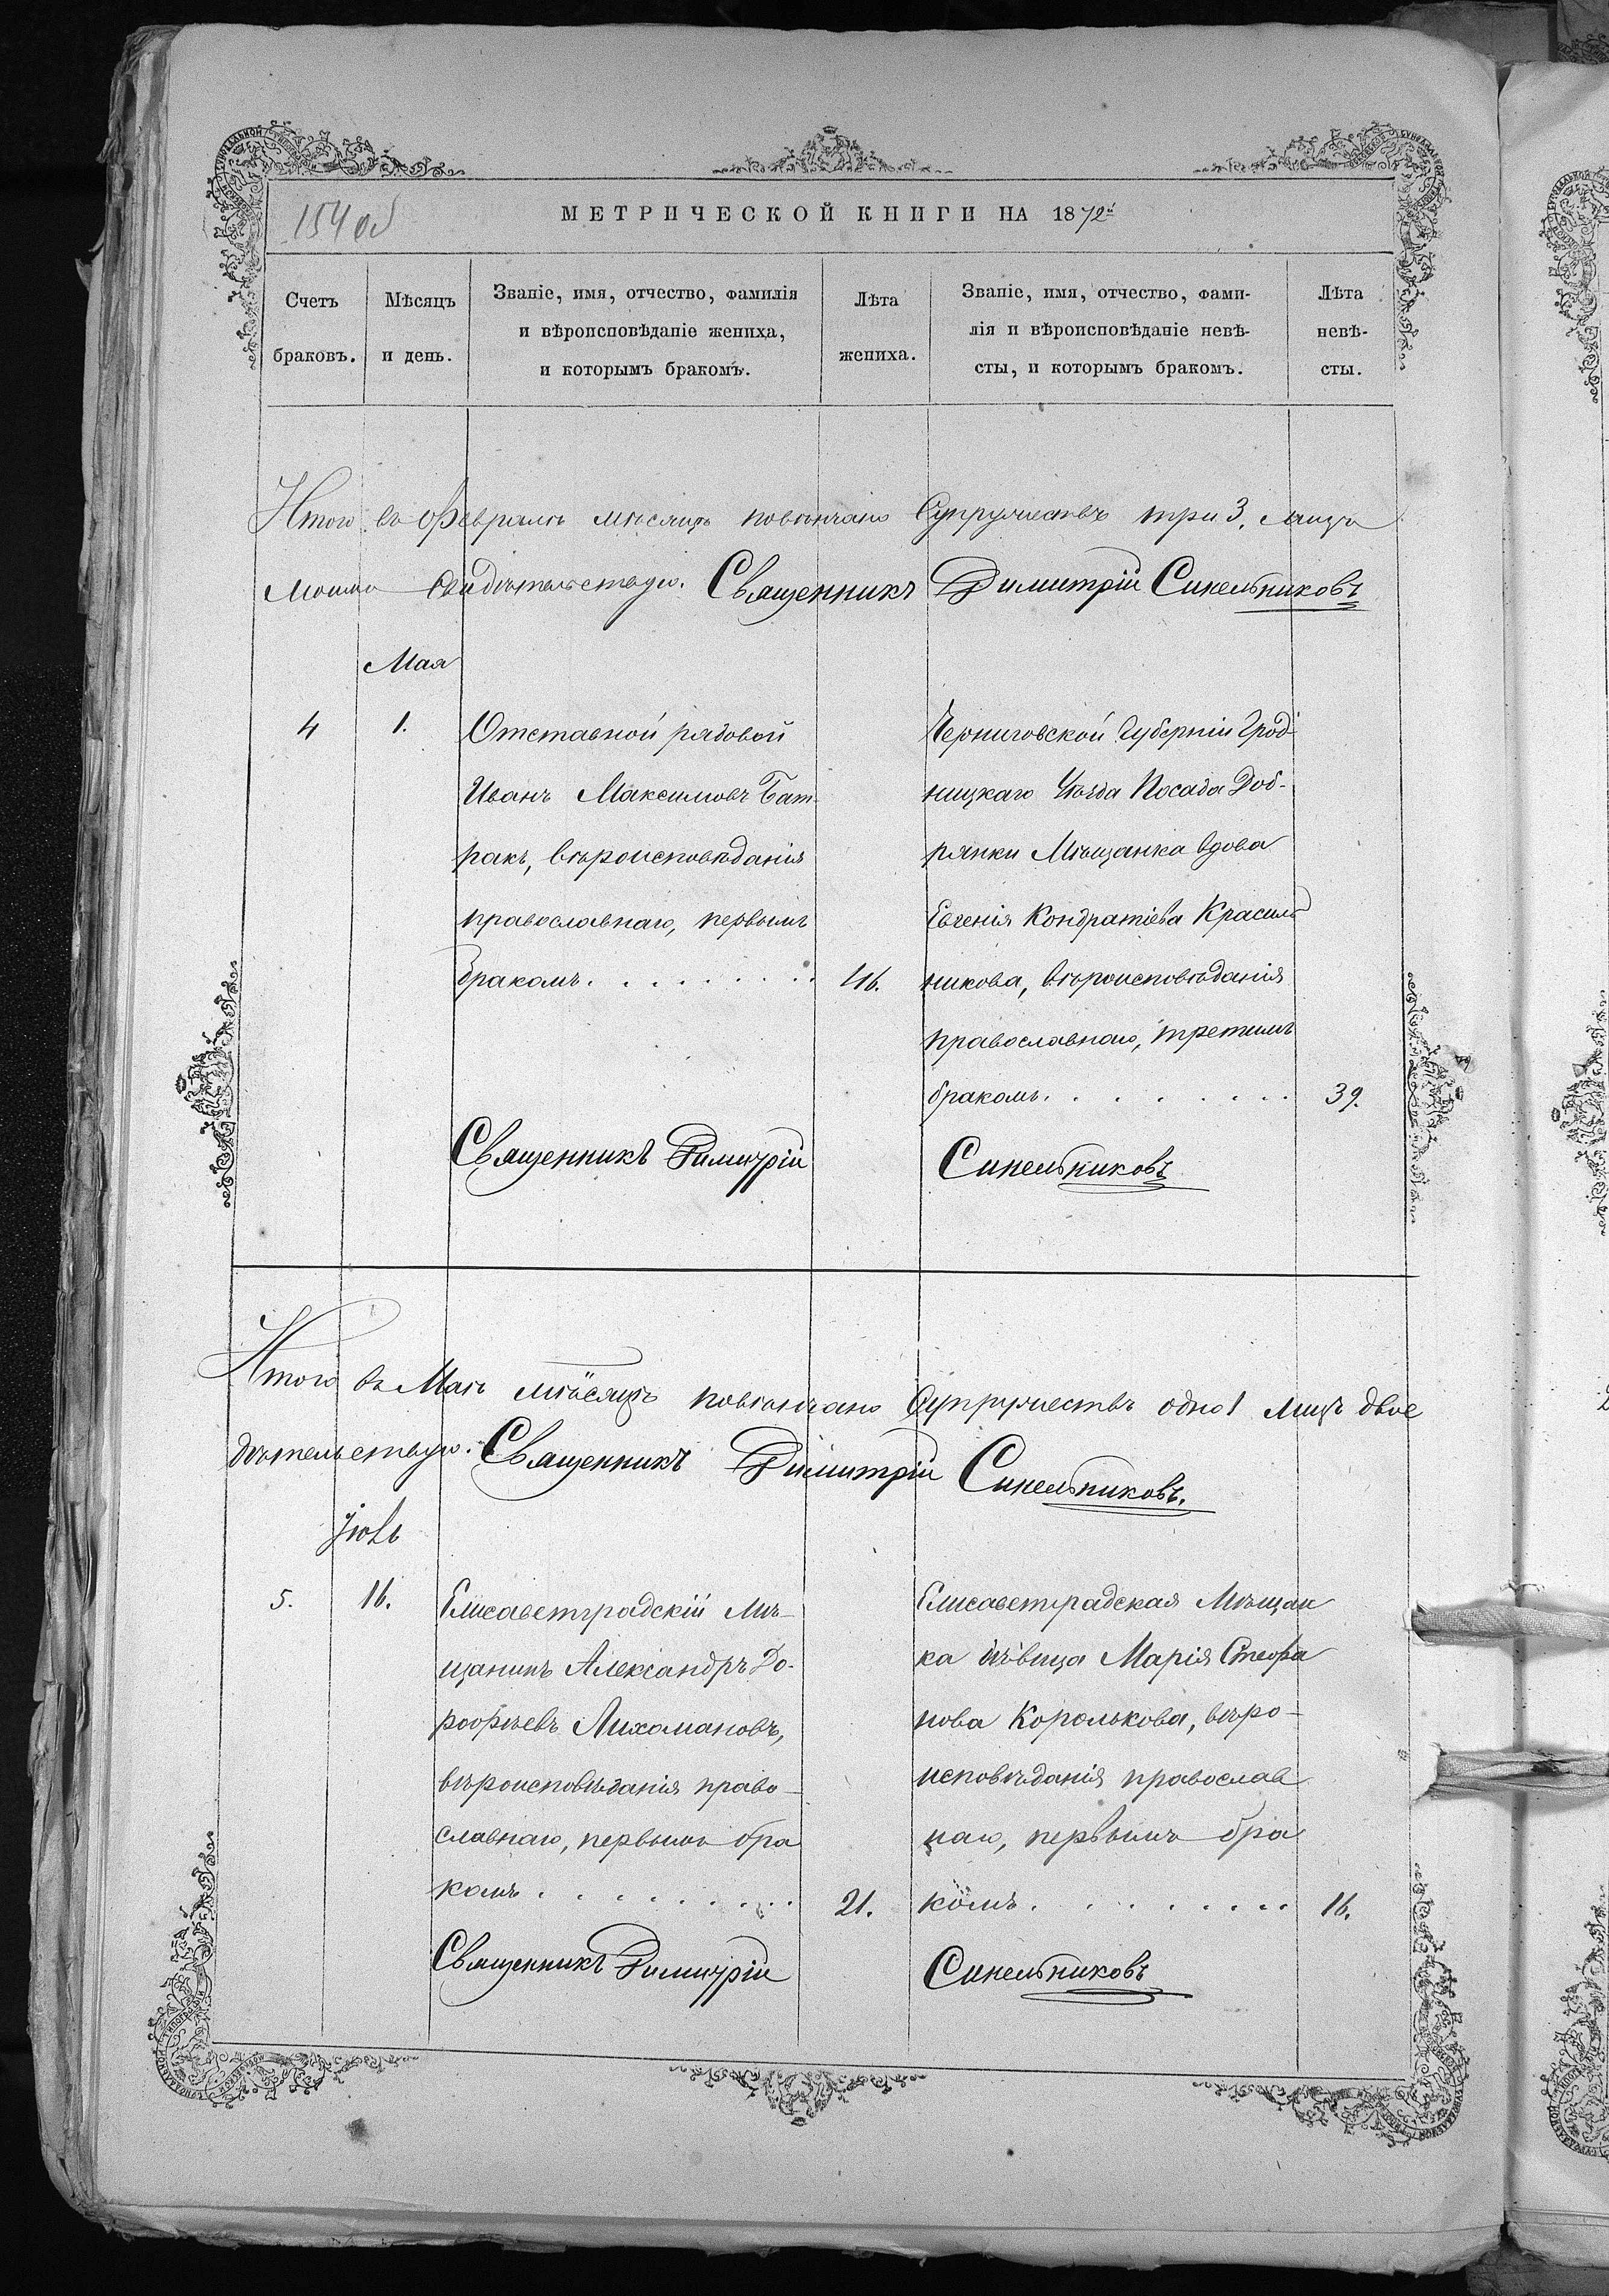 154 об
МЕТРИЧЕСКОЙ КНИГИ НА 1872й
Счетъ браковъ.
Мѣсяцъ и день.
Званіе, имя, отчество, фамилія
и вѣроисповѣданіе жениха,
и которымъ бракомъ.
Лѣта
жениха.
Званіе, имя, отчество, фами-
лія и вѣроисповѣданіе невѣ-
сты, и которымъ бракомъ.
Лѣта
невѣ-
сты.
Итого въ Февралѣ мѣсяцѣ повѣнчано Супружествъ три 3. лицъ
свидѣтельствую. Священникъ Димитрій Синельниковъ
Мая
4
1.
Отставной рядовой
Иванъ Максимовъ Бат-
ракъ, вѣроисповѣданія
православнаго, первымъ
бракомъ.
46.
Черниговской Губерніи Грод
ницкаго Уѣзда Посада Доб-
рянки Мѣщанка вдова
Евгенія Кондратіева Красиль
никова, вѣроисповѣданія
православнаго, третимъ
бракомъ.
39.
Священникъ Димитрій Синельниковъ
Итого въ Маѣ мѣсяцѣ повѣнчано Супружествъ одно 1 лицъ двое
дѣтельствую. Священникъ Димитрій Синельниковъ.
Іюль
5.
16.
Елисаветградскій Мѣ-
щанинъ Александръ До-
рофѣевъ Лихомановъ,
вѣроисповѣданія право-
славнаго, первымъ бра
комъ
21.
Елисаветградская Мѣщан
ка дѣвица Марія Стефа
нова Королькова, вѣро-
исповѣданія православ
наго, первымъ бра
комъ.
16.
Священникъ Димитрій Синельниковъ